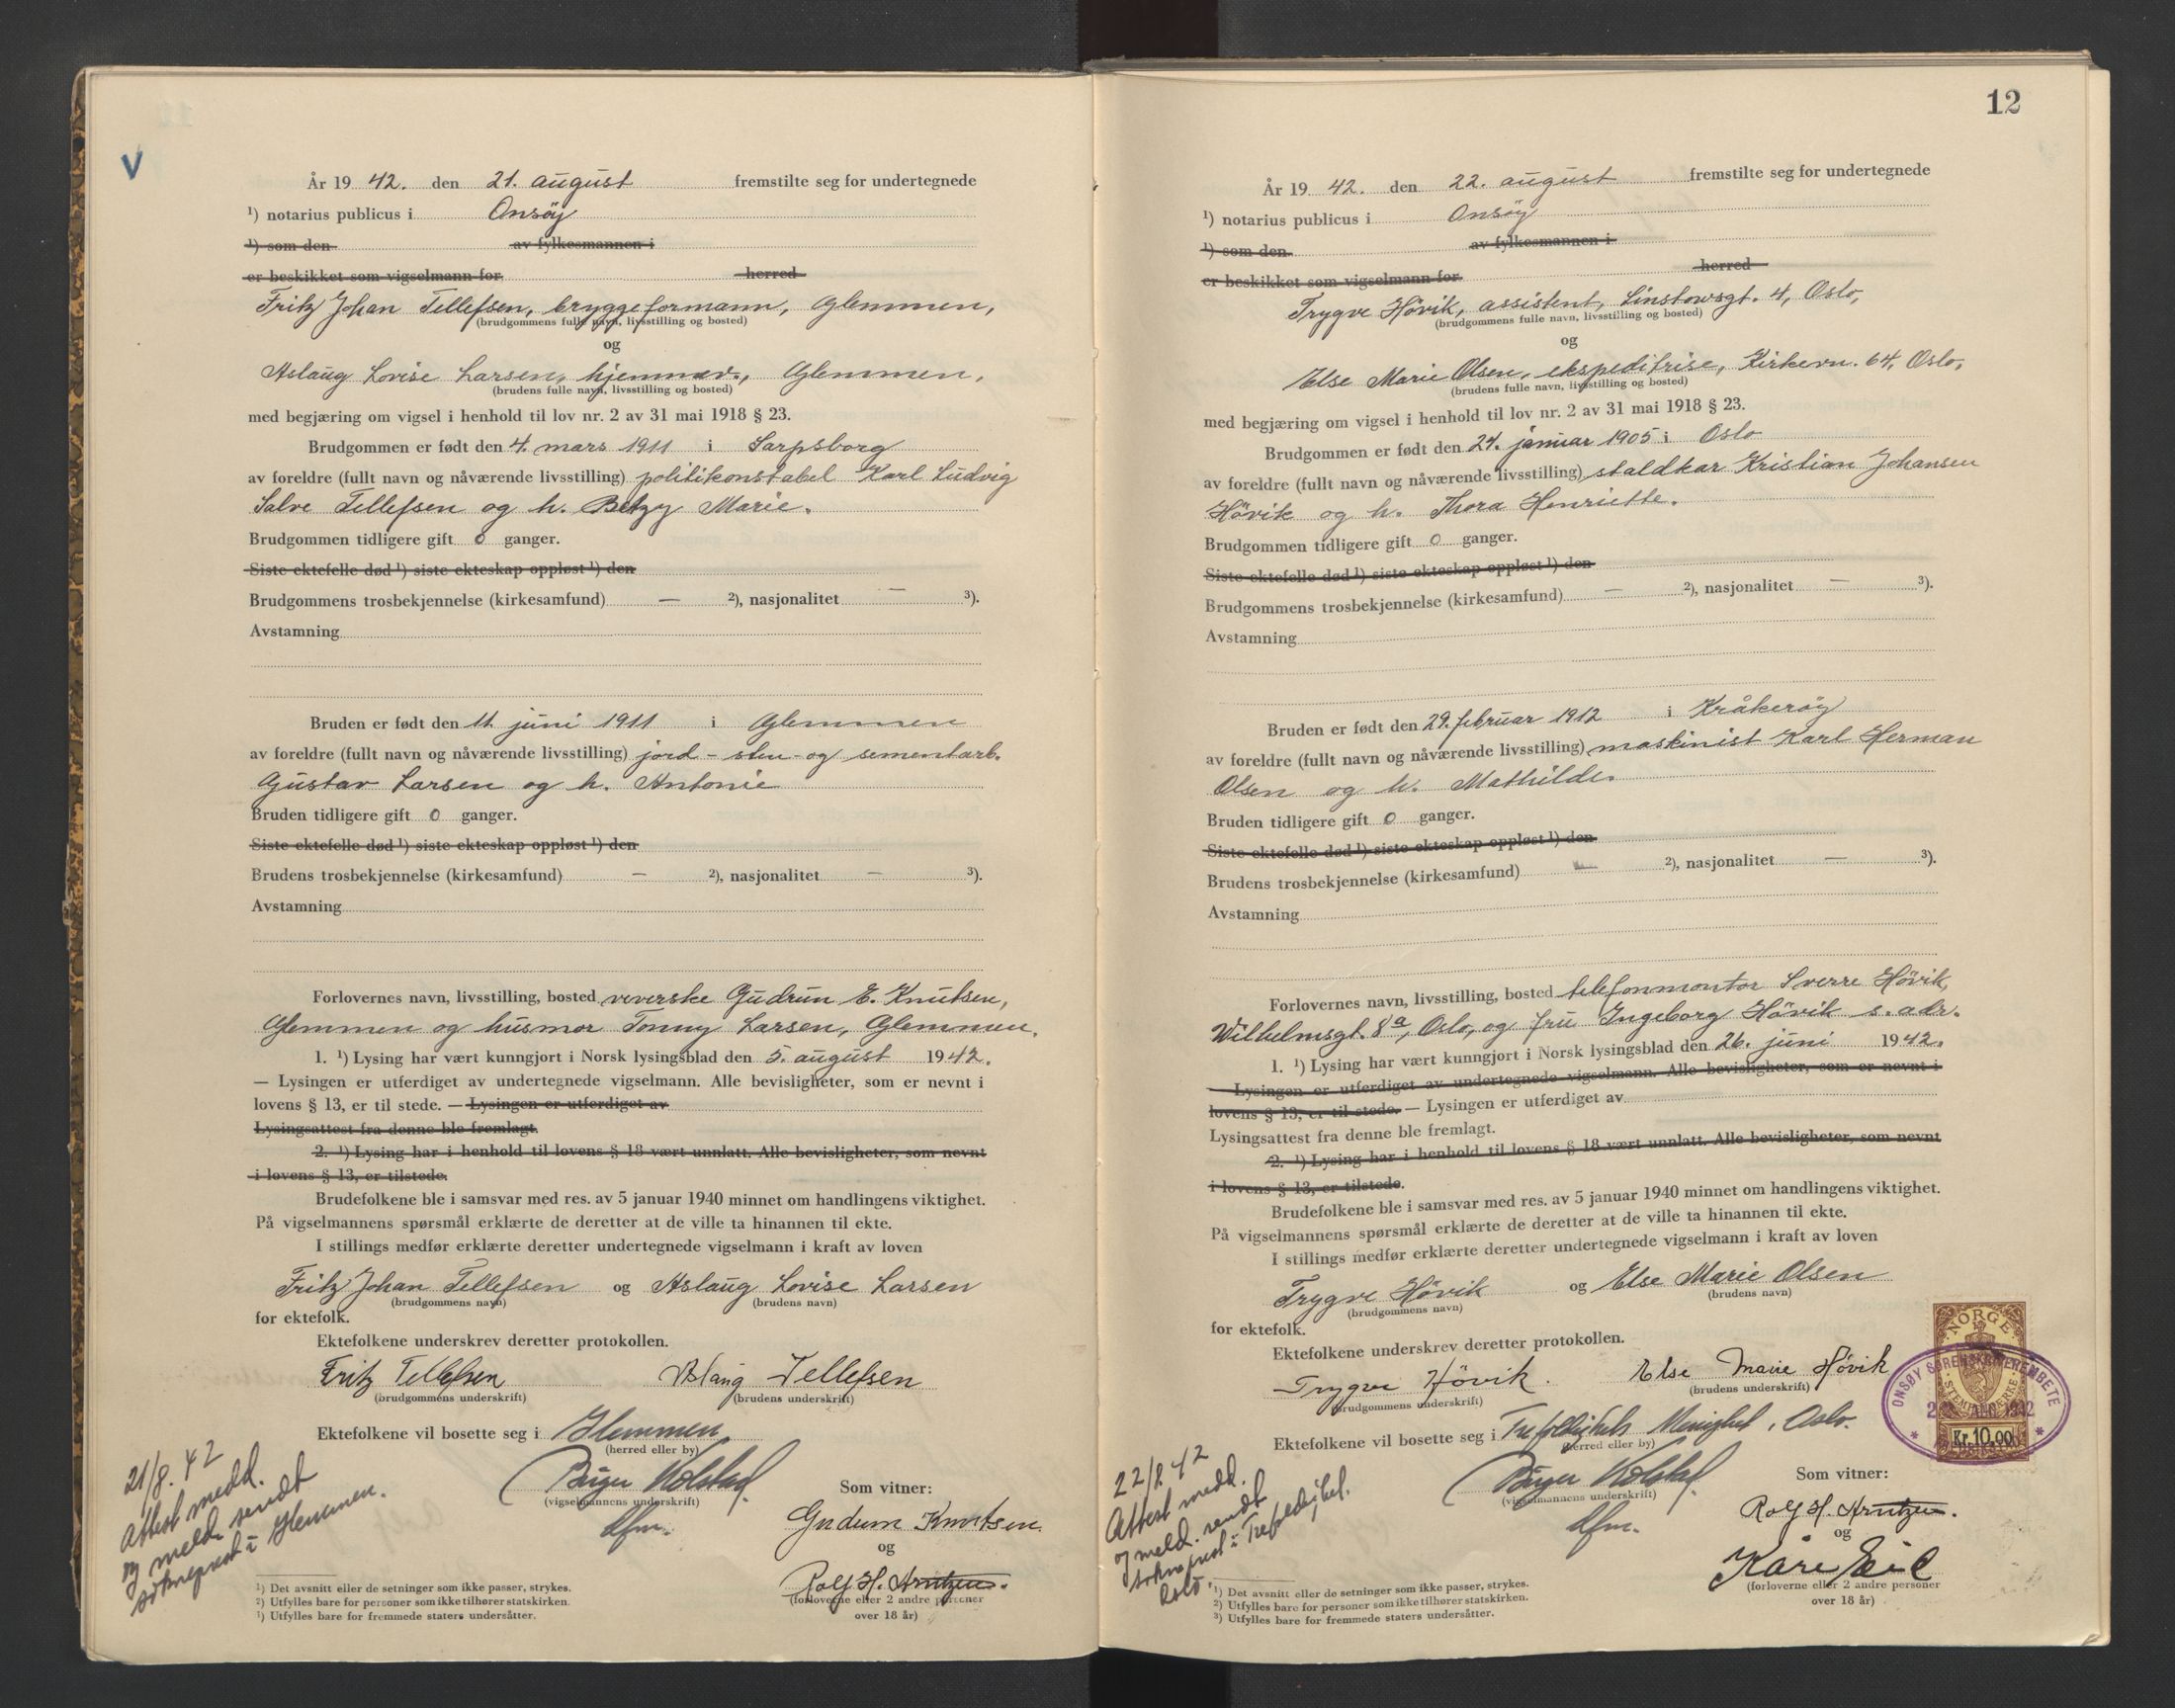 V
År 19 42. den 21. august fremstilte seg for undertegnede
¹) notarius publicus i Onsöy
¹) som den av fylkesmannen i
er beskikket som vigselmann for herred
Fritz Johan Tellefsen, bryggeformann, Glemmen,
(brudgommens fulle navn, livsstilling og bosted)
og
Aslaug Lovise Larsen, hjemmev., Glemmen,
(brudens fulle navn, livsstilling og bosted)
med begjæring om vigsel i henhold til lov nr. 2 av 31 mai 1918 § 23.
Brudgommen er født den 4. mars 1911 i Sarpsborg
av foreldre (fullt navn og nåværende livsstilling) politikonstabel Karl Ludvig
Salve Tellefsen og h. Betzy Marie.
Brudgommen tidligere gift 0 ganger.
Siste ektefelle død ¹) siste ekteskap oppløst ¹) den
Brudgommens trosbekjennelse (kirkesamfund) — ²), nasjonalitet — ³).
Avstamning
Bruden er født den 11. juni 1911 i Glemmen
av foreldre (fullt navn og nåværende livsstilling) jord - sten - og sementarb.
Gustav Larsen og h. Antonie
Bruden tidligere gift 0 ganger.
Siste ektefelle død ¹) siste ekteskap oppløst ¹) den
Brudens trosbekjennelse (kirkesamfund) — ²), nasjonalitet — ³).
Avstamning
Forlovernes navn, livsstilling, bosted veverske Gudrun E. Knutsen,
Glemmen og husmor Tonny Larsen, Glemmen.
1. ¹) Lysing har vært kunngjort i Norsk lysingsblad den 5. august 1942.
— Lysingen er utferdiget av undertegnede vigselmann. Alle bevisligheter, som er nevnt i
lovens § 13, er til stede. — Lysingen er utferdiget av
Lysingsattest fra denne ble fremlagt.
2. ¹) Lysing har i henhold til lovens § 18 vært unnlatt. Alle bevisligheter, som nevnt
i lovens § 13, er tilstede.
Brudefolkene ble i samsvar med res. av 5 januar 1940 minnet om handlingens viktighet.
På vigselmannens spørsmål erklærte de deretter at de ville ta hinannen til ekte.
I stillings medfør erklærte deretter undertegnede vigselmann i kraft av loven
Fritz Johan Tellefsen og Aslaug Lovise Larsen
(brudgommens navn) (brudens navn)
for ektefolk.
Ektefolkene underskrev deretter protokollen.
Fritz Tellefsen Aslaug Tellefsen
(brudgommens underskrift) (brudens underskrift)
Ektefolkene vil bosette seg i Glemmen
(herred eller by)
Birger Kolstad.
(vigselmannens underskrift)
dfm.
Som vitner:
Gudrun Knutsen
og
Rolf H. Arntzen.
(forloverne eller 2 andre personer
over 18 år)
21/8. 42
Attest medd.
og meld. sendt
sokneprest i Glemmen.
¹) Det avsnitt eller de setninger som ikke passer, strykes.
²) Utfylles bare for personer som ikke tilhører statskirken.
³) Utfylles bare for fremmede staters undersåtter.
12
År 19 42. den 22. august fremstilte seg for undertegnede
¹) notarius publicus i Onsöy
¹) som den av fylkesmannen i
er beskikket som vigselmann for herred
Trygve Hövik, assistent, Linstowsgt. 4, Oslo,
(brudgommens fulle navn, livsstilling og bosted)
og
Else Marie Olsen, ekspeditrise, Kirkevn. 64, Oslo,
(brudens fulle navn, livsstilling og bosted)
med begjæring om vigsel i henhold til lov nr. 2 av 31 mai 1918 § 23.
Brudgommen er født den 24. januar 1905 i Oslo
av foreldre (fullt navn og nåværende livsstilling) staldkar Kristian Johansen
Hövik og h. Thora Henriette.
Brudgommen tidligere gift 0 ganger.
Siste ektefelle død ¹) siste ekteskap oppløst ¹) den
Brudgommens trosbekjennelse (kirkesamfund) — ²), nasjonalitet — ³).
Avstamning
Bruden er født den 29. februar 1912 i Kråkeröy
av foreldre (fullt navn og nåværende livsstilling) maskinist Karl Herman
Olsen og h. Mathilde.
Bruden tidligere gift 0 ganger.
Siste ektefelle død ¹) siste ekteskap oppløst ¹) den
Brudens trosbekjennelse (kirkesamfund) — ²), nasjonalitet — ³).
Avstamning
Forlovernes navn, livsstilling, bosted telefonmontör Sverre Hövik,
Wilhelmsgt. 8ª, Oslo, og fru Ingeborg Hövik s. adr.
1. ¹) Lysing har vært kunngjort i Norsk lysingsblad den 26. juni 1942.
— Lysingen er utferdiget av undertegnede vigselmann. Alle bevisligheter, som er nevnt i
lovens § 13, er til stede. — Lysingen er utferdiget av
Lysingsattest fra denne ble fremlagt.
2. ¹) Lysing har i henhold til lovens § 18 vært unnlatt. Alle bevisligheter, som nevnt
i lovens § 13, er tilstede.
Brudefolkene ble i samsvar med res. av 5 januar 1940 minnet om handlingens viktighet.
På vigselmannens spørsmål erklærte de deretter at de ville ta hinannen til ekte.
I stillings medfør erklærte deretter undertegnede vigselmann i kraft av loven
Trygve Hövik og Else Marie Olsen
(brudgommens navn) (brudens navn)
for ektefolk.
Ektefolkene underskrev deretter protokollen.
Trygve Hövik. Else Marie Hövik
(brudgommens underskrift) (brudens underskrift)
Ektefolkene vil bosette seg i Trefoldighets Menighet, Oslo.
(herred eller by)
Birger Kolstad.
(vigselmannens underskrift)
dfm.
Som vitner:
Rolf H. Arntzen.
og
Kåre
(forloverne eller 2 andre personer
over 18 år)
NORGE
STEMPELMERKE
Kr. 10,00
ONSØY SORENSKRIVEREMBETE
22 AUG. 1942
22/8 42
Attest medd.
og meld. sendt
sokneprest i Trefoldighet.
Oslo.
¹) Det avsnitt eller de setninger som ikke passer, strykes.
²) Utfylles bare for personer som ikke tilhører statskirken.
³) Utfylles bare for fremmede staters undersåtter.